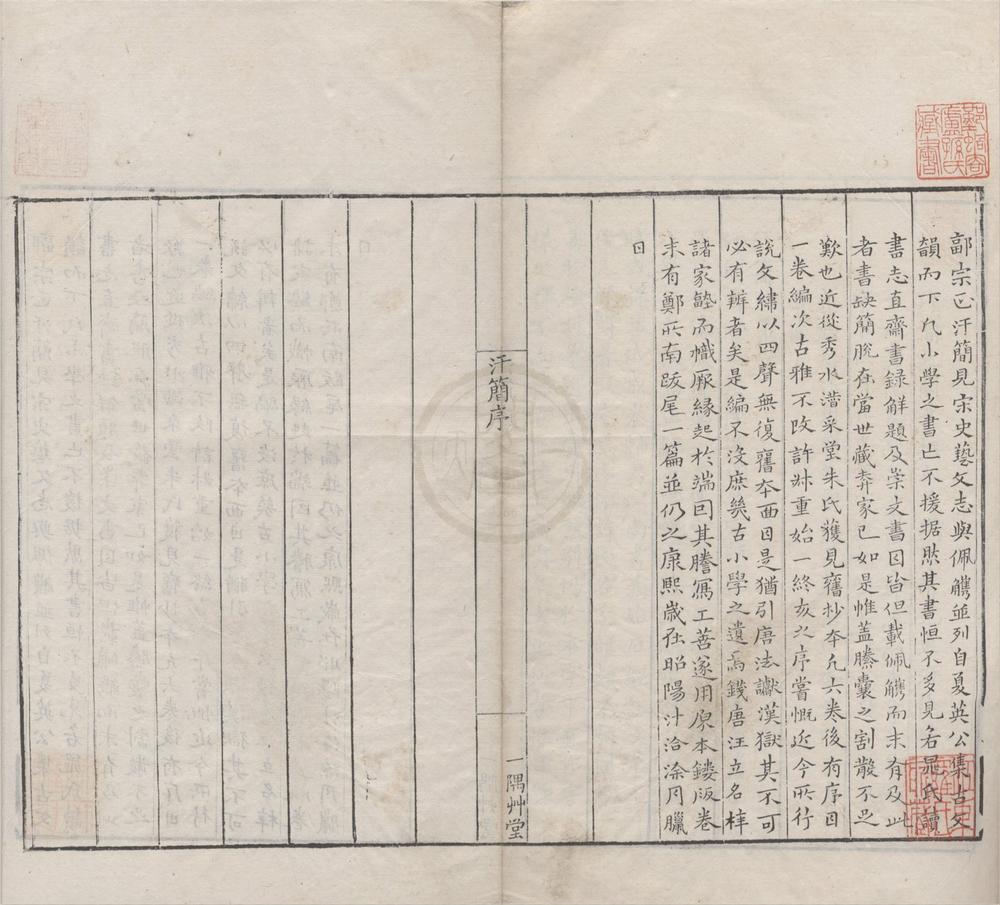 郭宗正汗簡見宋史藝文志與佩觿並列自夏英公集古文
韻而下凡小學之書亡不援据然其書恒不多見若晁氏讀
書志直齋書録解題及崇文書目皆但載佩觿而未有及此
者書缺簡脫在當世藏弆家已如是惟蓋縢囊之割散不足
歎也近從秀水潛采堂朱氏獲見舊抄本凡六卷後有序目
一卷編次古雅不改許叔重始一終亥之序嘗慨近今所行
說文繡以四聲無復舊本面目是猶引唐法讞漢獄其不可
必有辨者矣是編不沒庶幾古小學之遺焉錢唐汪立名梓
諸家塾而幟厥縁起於端回其謄寫工善遂用原本鏤版卷
末有鄭所南跋尾一篇並仍之康熙歲在昭陽汁洽涂月臘
日
汗簡序
一隅艸堂